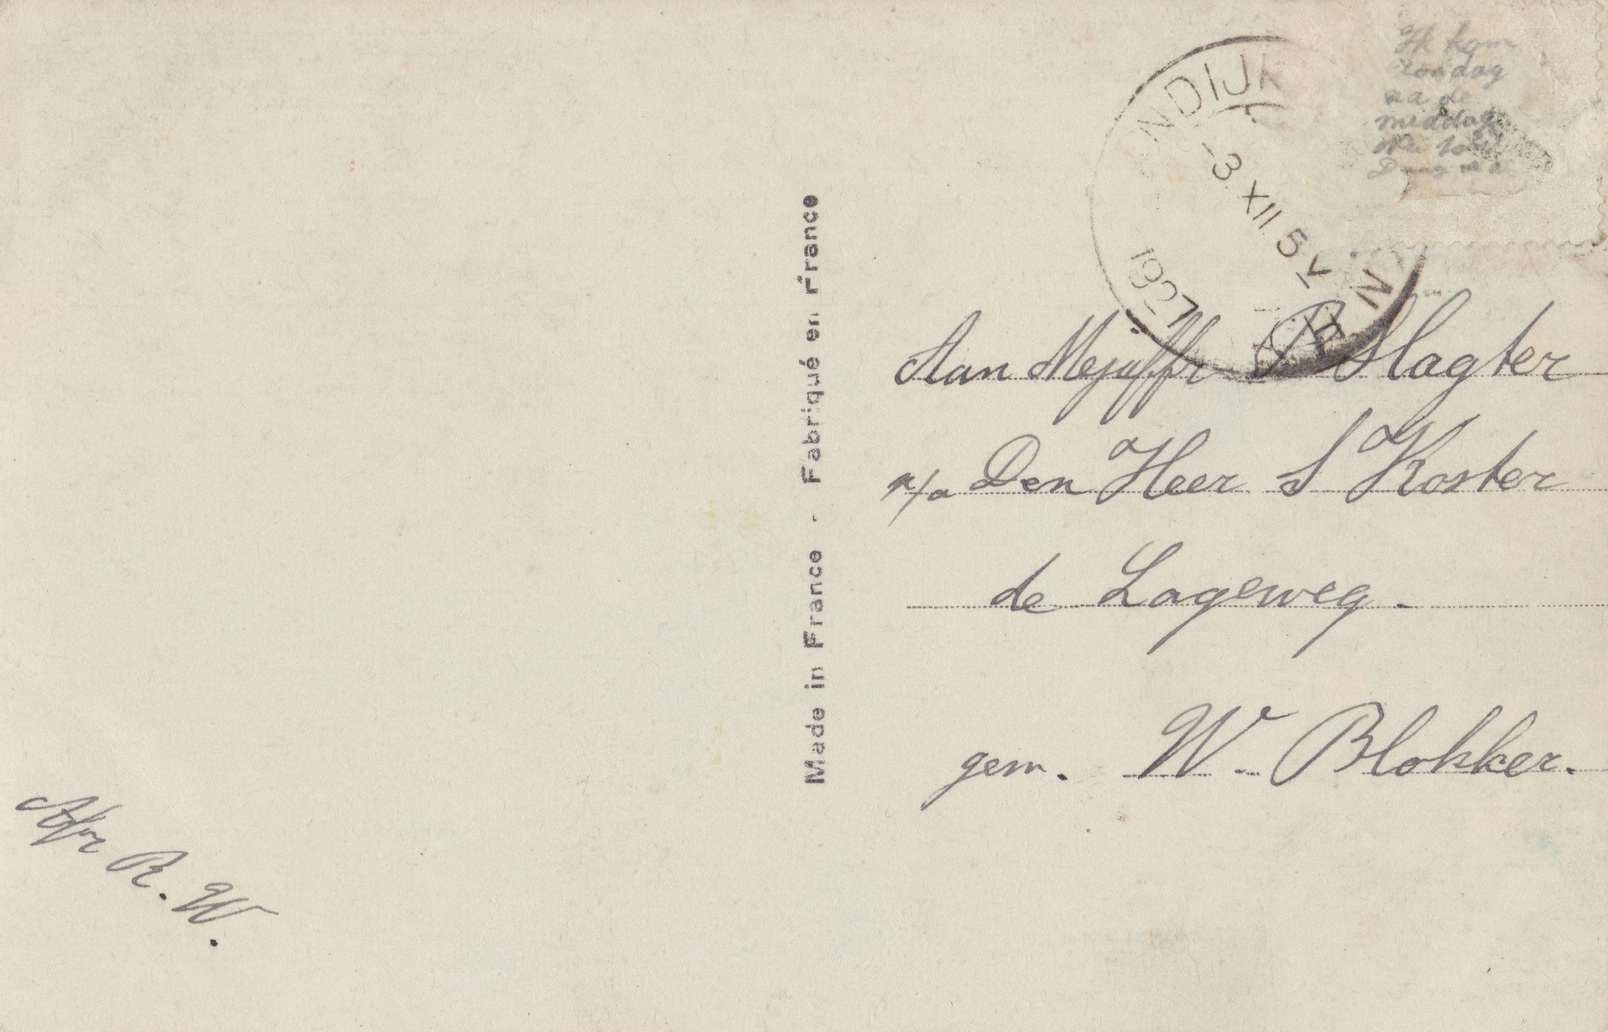 Ik kom
zondag
na de
middag
NDIJK
-3.XII.5V
1927
N
H
Made in France - Fabriqué en France
Aan Mejuffr Slagter
p/a Den Heer S Koster
de Lageweg.
gem. W. Blokker.
Afzr R. W.